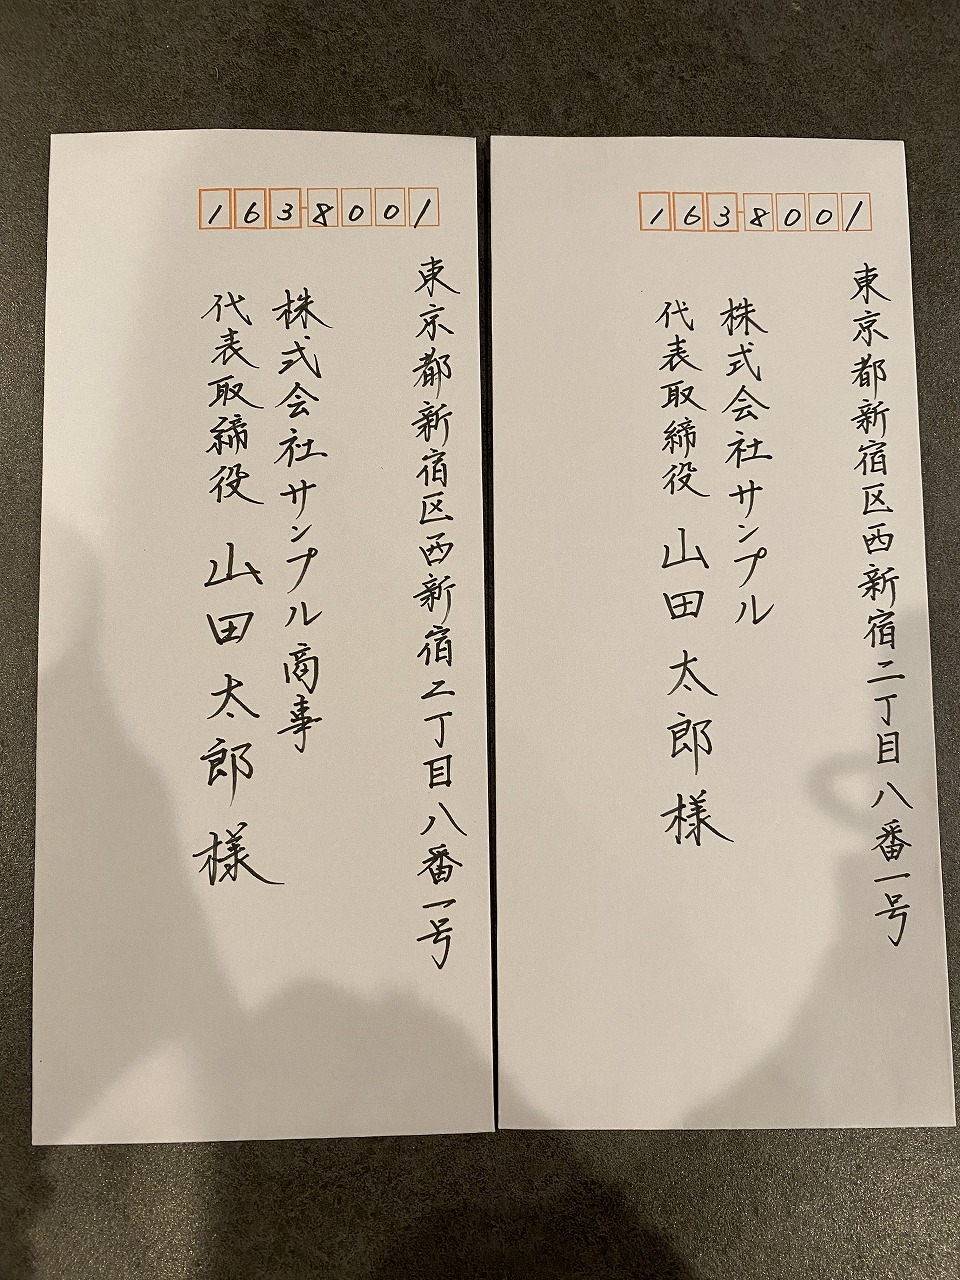 163-8001
東京都新宿区西新宿二丁目八番一号
株式会社サンプル商事
代表取締役 山田太郎様
163-8001
東京都新宿区西新宿二丁目八番一号
株式会社サンプル
代表取締役 山田太郎様